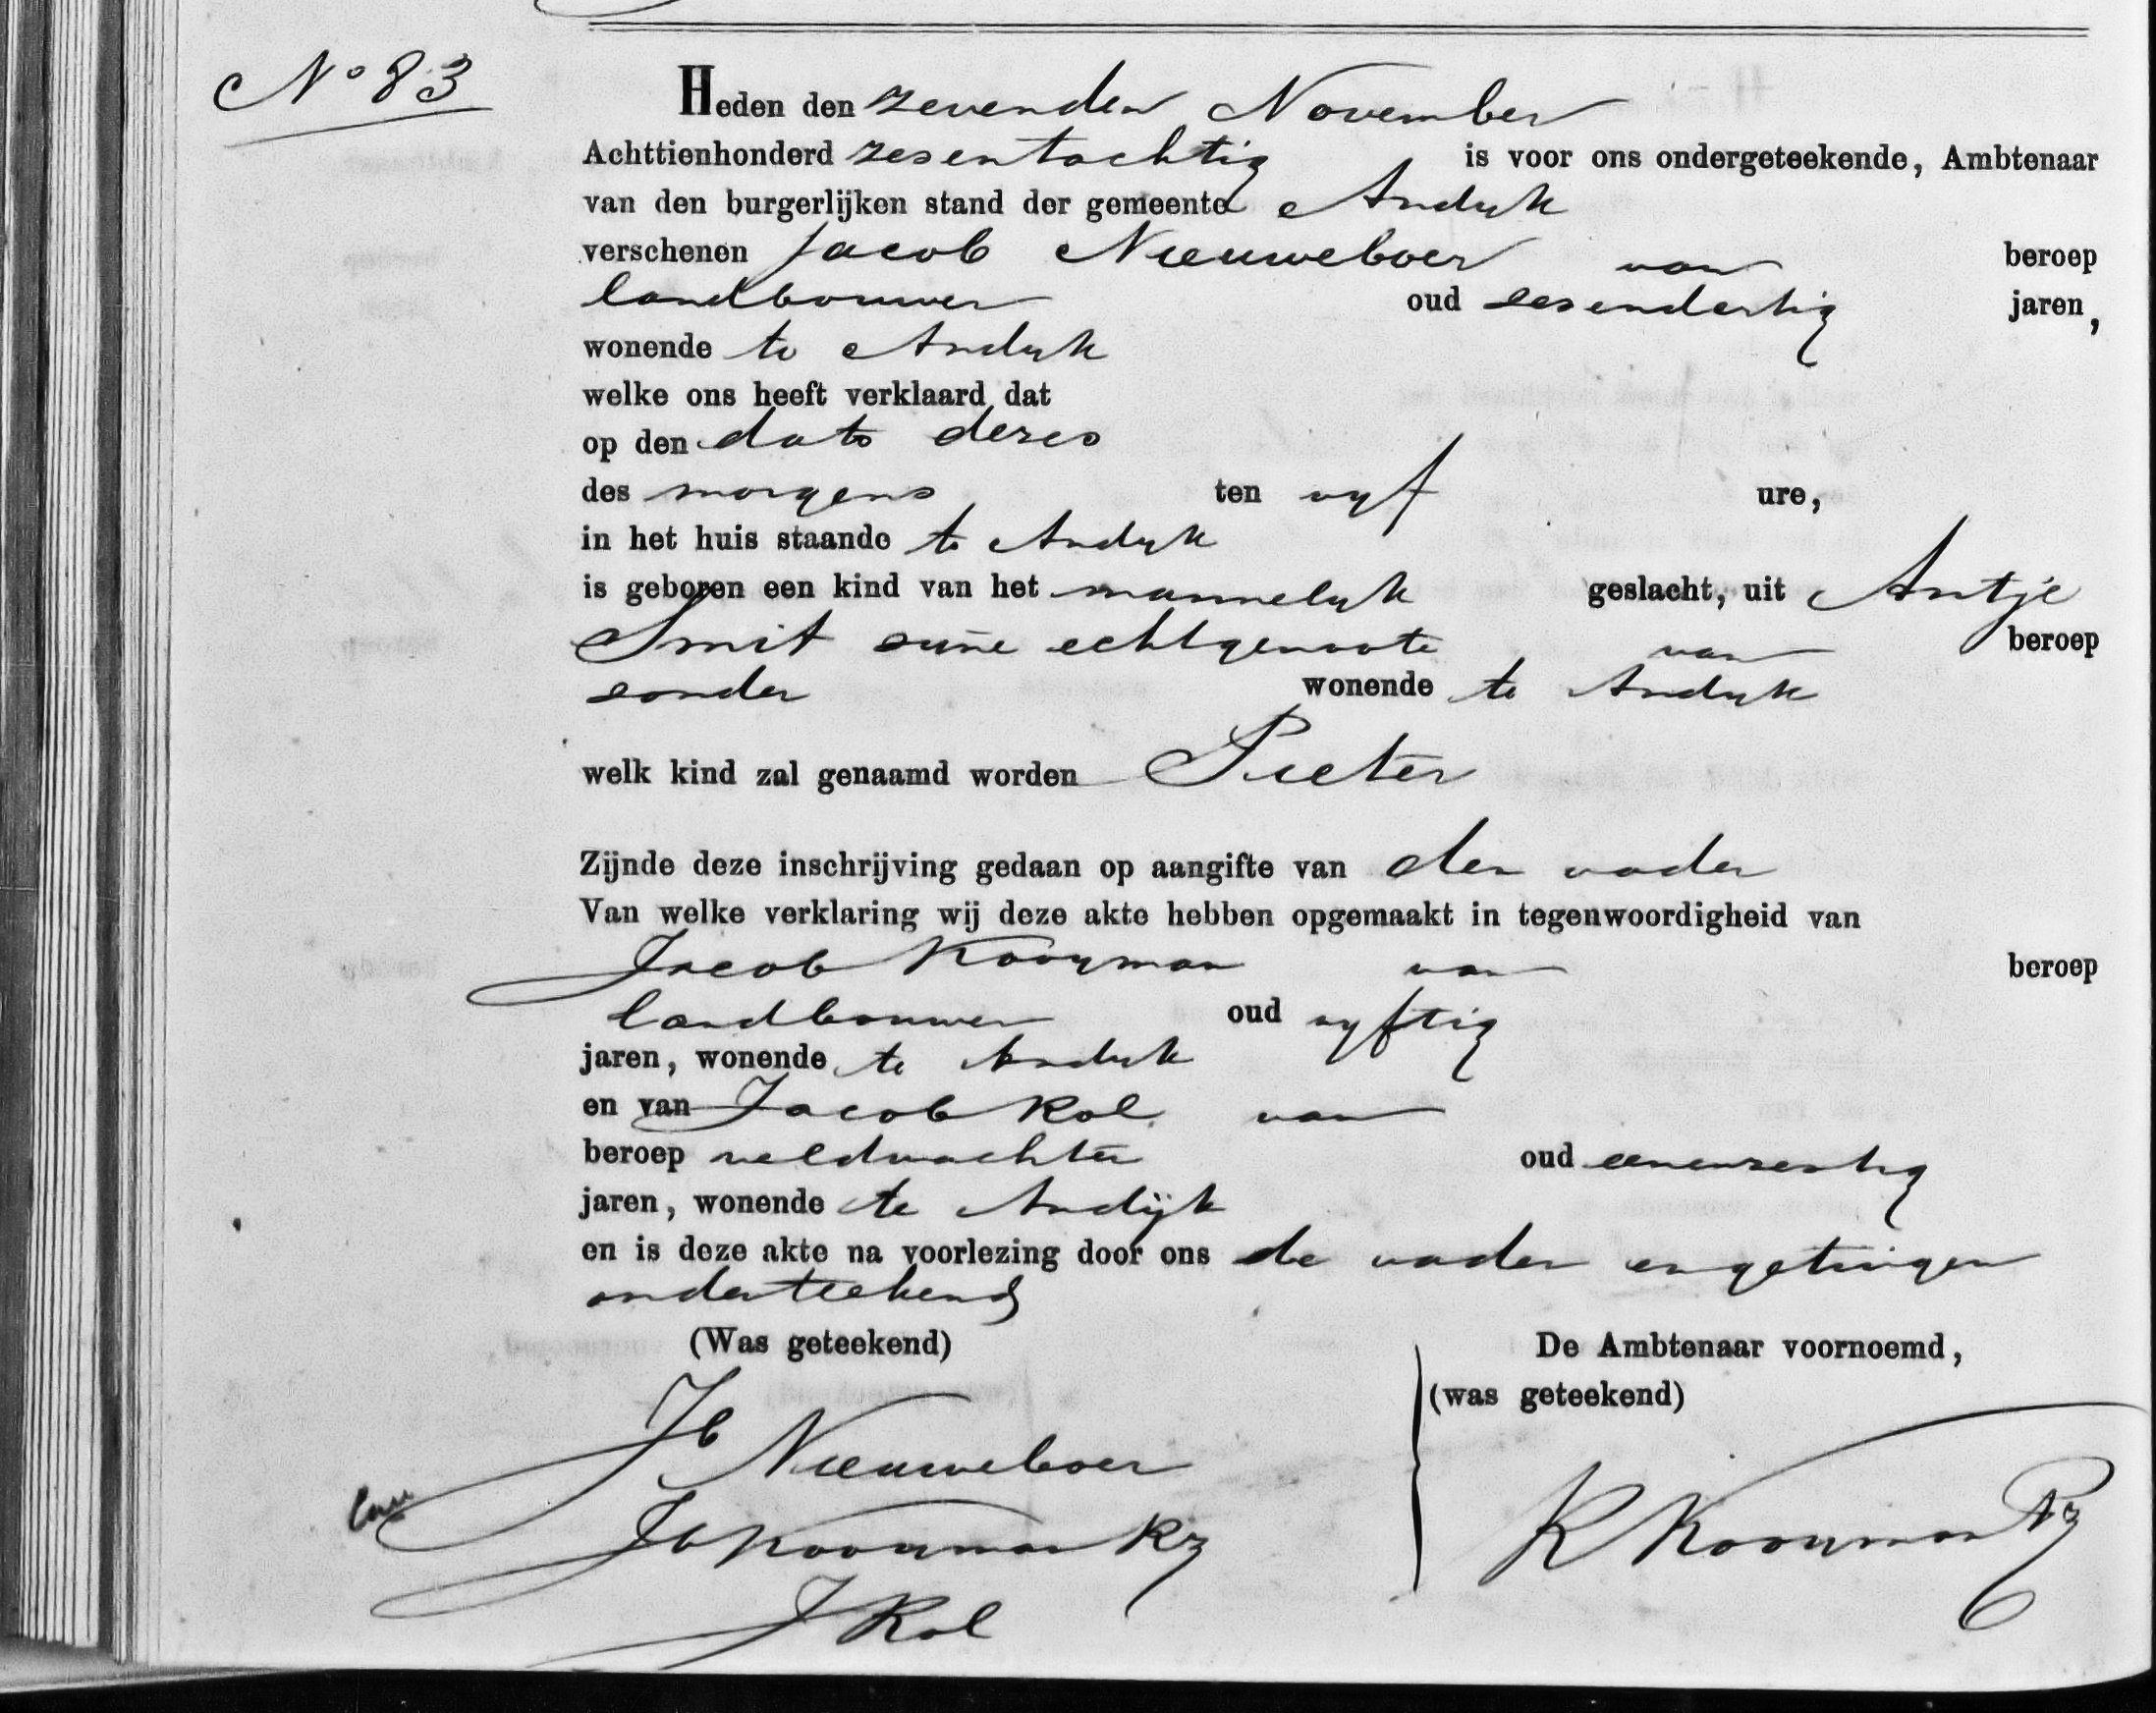 No 83
Heden den zevenden November
Achttienhonderd zesentachtig is voor ons ondergeteekende, Ambtenaar
van den burgerlijken stand der gemeente Andyk
verschenen Jacob Nieuweboer van beroep
landbouwer oud zesendertig jaren,
wonende te Andyk
welke ons heeft verklaard dat
op den dato dezes
des morgens ten vyf ure,
in het huis staande te Andyk
is geboren een kind van het mannelyk geslacht, uit Antje
Smit zyne echtgenoote van beroep
zonder wonende te Andyk
welk kind zal genaamd worden Pieter
Zijnde deze inschrijving gedaan op aangifte van den vader
Van welke verklaring wij deze akte hebben opgemaakt in tegenwoordigheid van
Jacob Kooyman van beroep
landbouwer oud vyftig
jaren, wonende te Andyk
en van Jacob Kol van
beroep veldwachter oud eenenzestig
jaren, wonende te Andijk
en is deze akte na voorlezing door ons de vader en getuigen
onderteekend
(Was geteekend) De Ambtenaar voornoemd,
(was geteekend)
Jb Nieuweboer
Jb Kooyman Kz K Kooyman Pz
J Kol